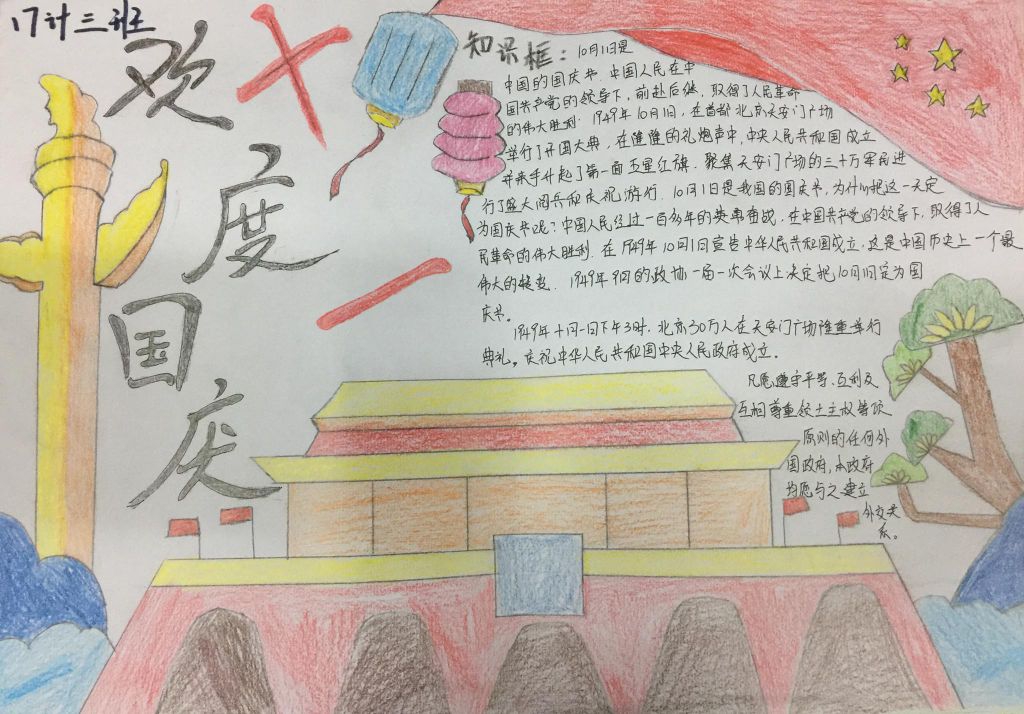 17计三班
欢度国庆
十一
知识框：10月1日是
中国的国庆节，中国人民在中
国共产党的领导下，前赴后继，取得了人民革命
的伟大胜利．1949年10月1日，在首都北京天安门广场
举行了开国大典，在隆隆的礼炮声中，中央人民共和国成立
并亲手升起了第一面五星红旗．聚集天安门广场的三十万军民进
行了盛大阅兵和庆祝游行．10月1日是我国的国庆节，为什么把这一天定
为国庆节呢？中国人民经过一百多年的英勇奋战，在中国共产党的领导下，取得了人
民革命的伟大胜利．在1949年10月1日宣告中华人民共和国成立，这是中国历史上一个最
伟大的转变．1949年9月的政协一届一次会议上决定把10月1日定为国
庆节。
1949年十月一日下午3时，北京30万人在天安门广场隆重举行
典礼。庆祝中华人民共和国中央人民政府成立．
凡愿遵守平等、互利及
互相尊重领土主权等项
原则的任何外
国政府，本政府
均愿与之建立
外交关
系。